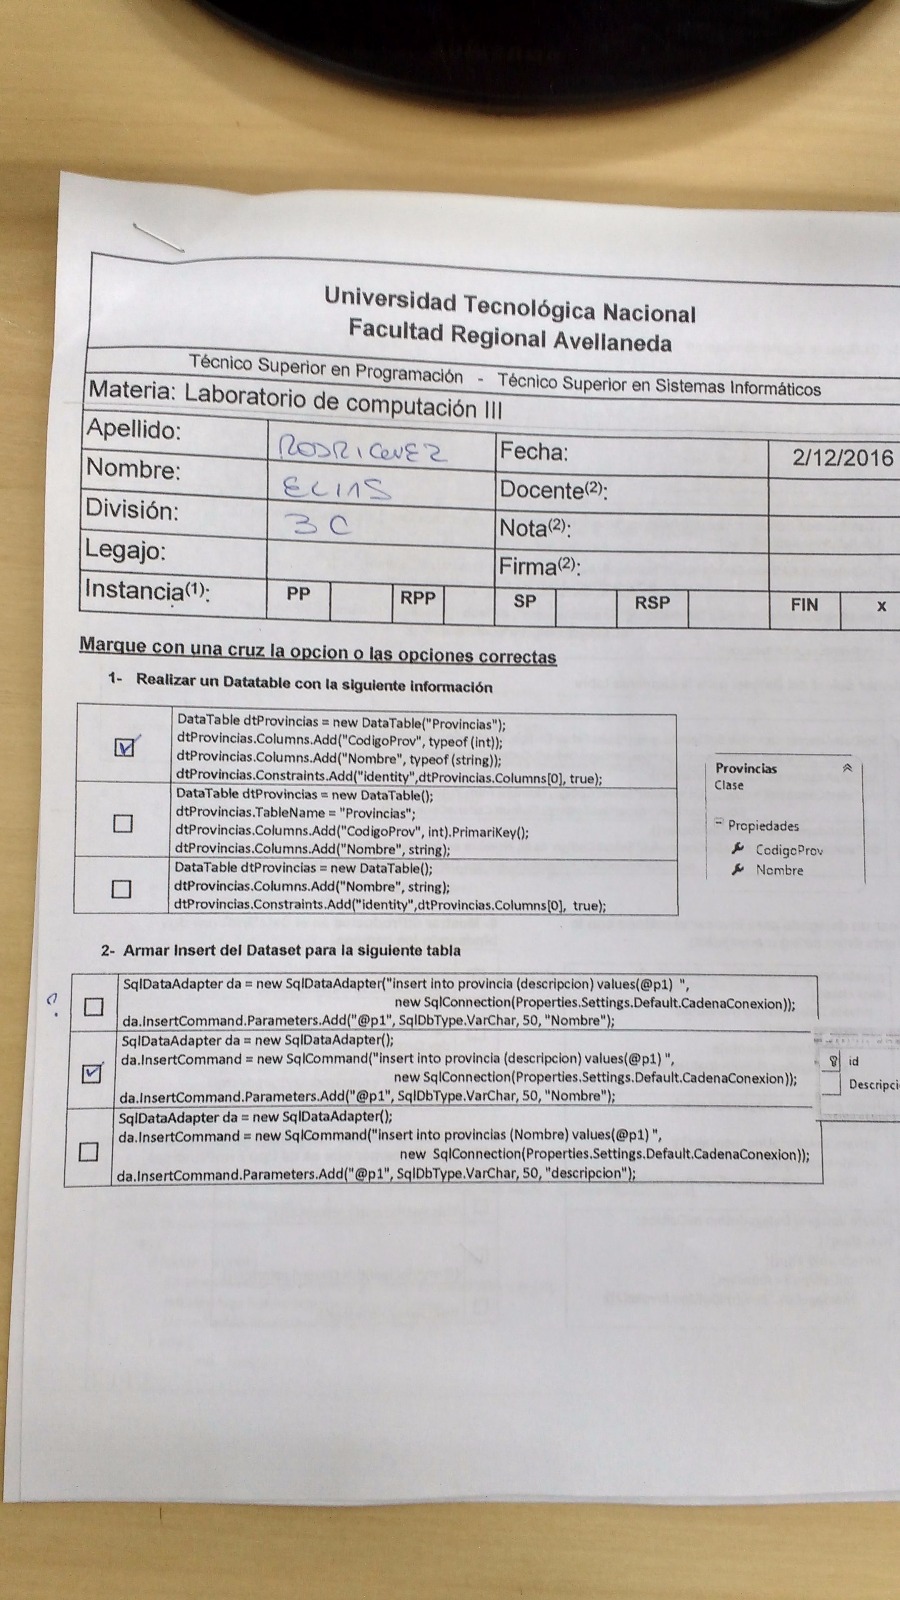 Universidad Tecnológica Nacional
Facultad Regional Avellaneda
Técnico Superior en Programación - Técnico Superior en Sistemas Informáticos
Materia: Laboratorio de computación III
Apellido: RODRIGUEZ Fecha: 2/12/2016
Nombre: ELIAS Docente(2):
División: 3C Nota(2):
Legajo: Firma(2):
Instancia(1): PP RPP SP RSP FIN x
Marque con una cruz la opcion o las opciones correctas
1- Realizar un Datatable con la siguiente información
DataTable dtProvincias = new DataTable("Provincias");
dtProvincias.Columns.Add("CodigoProv", typeof (int));
dtProvincias.Columns.Add("Nombre", typeof (string));
dtProvincias.Constraints.Add("identity",dtProvincias.Columns[0], true);
DataTable dtProvincias = new DataTable();
dtProvincias.TableName = "Provincias";
dtProvincias.Columns.Add("CodigoProv", int).PrimariKey();
dtProvincias.Columns.Add("Nombre", string);
DataTable dtProvincias = new DataTable();
dtProvincias.Columns.Add("Nombre", string);
dtProvincias.Constraints.Add("identity",dtProvincias.Columns[0], true);
Provincias
Clase
Propiedades
CodigoProv
Nombre
2- Armar Insert del Dataset para la siguiente tabla
?
SqlDataAdapter da = new SqlDataAdapter("insert into provincia (descripcion) values(@p1) ",
new SqlConnection(Properties.Settings.Default.CadenaConexion));
da.InsertCommand.Parameters.Add("@p1", SqlDbType.VarChar, 50, "Nombre");
SqlDataAdapter da = new SqlDataAdapter();
da.InsertCommand = new SqlCommand("insert into provincia (descripcion) values(@p1) ",
new SqlConnection(Properties.Settings.Default.CadenaConexion));
da.InsertCommand.Parameters.Add("@p1", SqlDbType.VarChar, 50, "Nombre");
SqlDataAdapter da = new SqlDataAdapter();
da.InsertCommand = new SqlCommand("insert into provincias (Nombre) values(@p1) ",
new SqlConnection(Properties.Settings.Default.CadenaConexion));
da.InsertCommand.Parameters.Add("@p1", SqlDbType.VarChar, 50, "descripcion");
id
Descripci